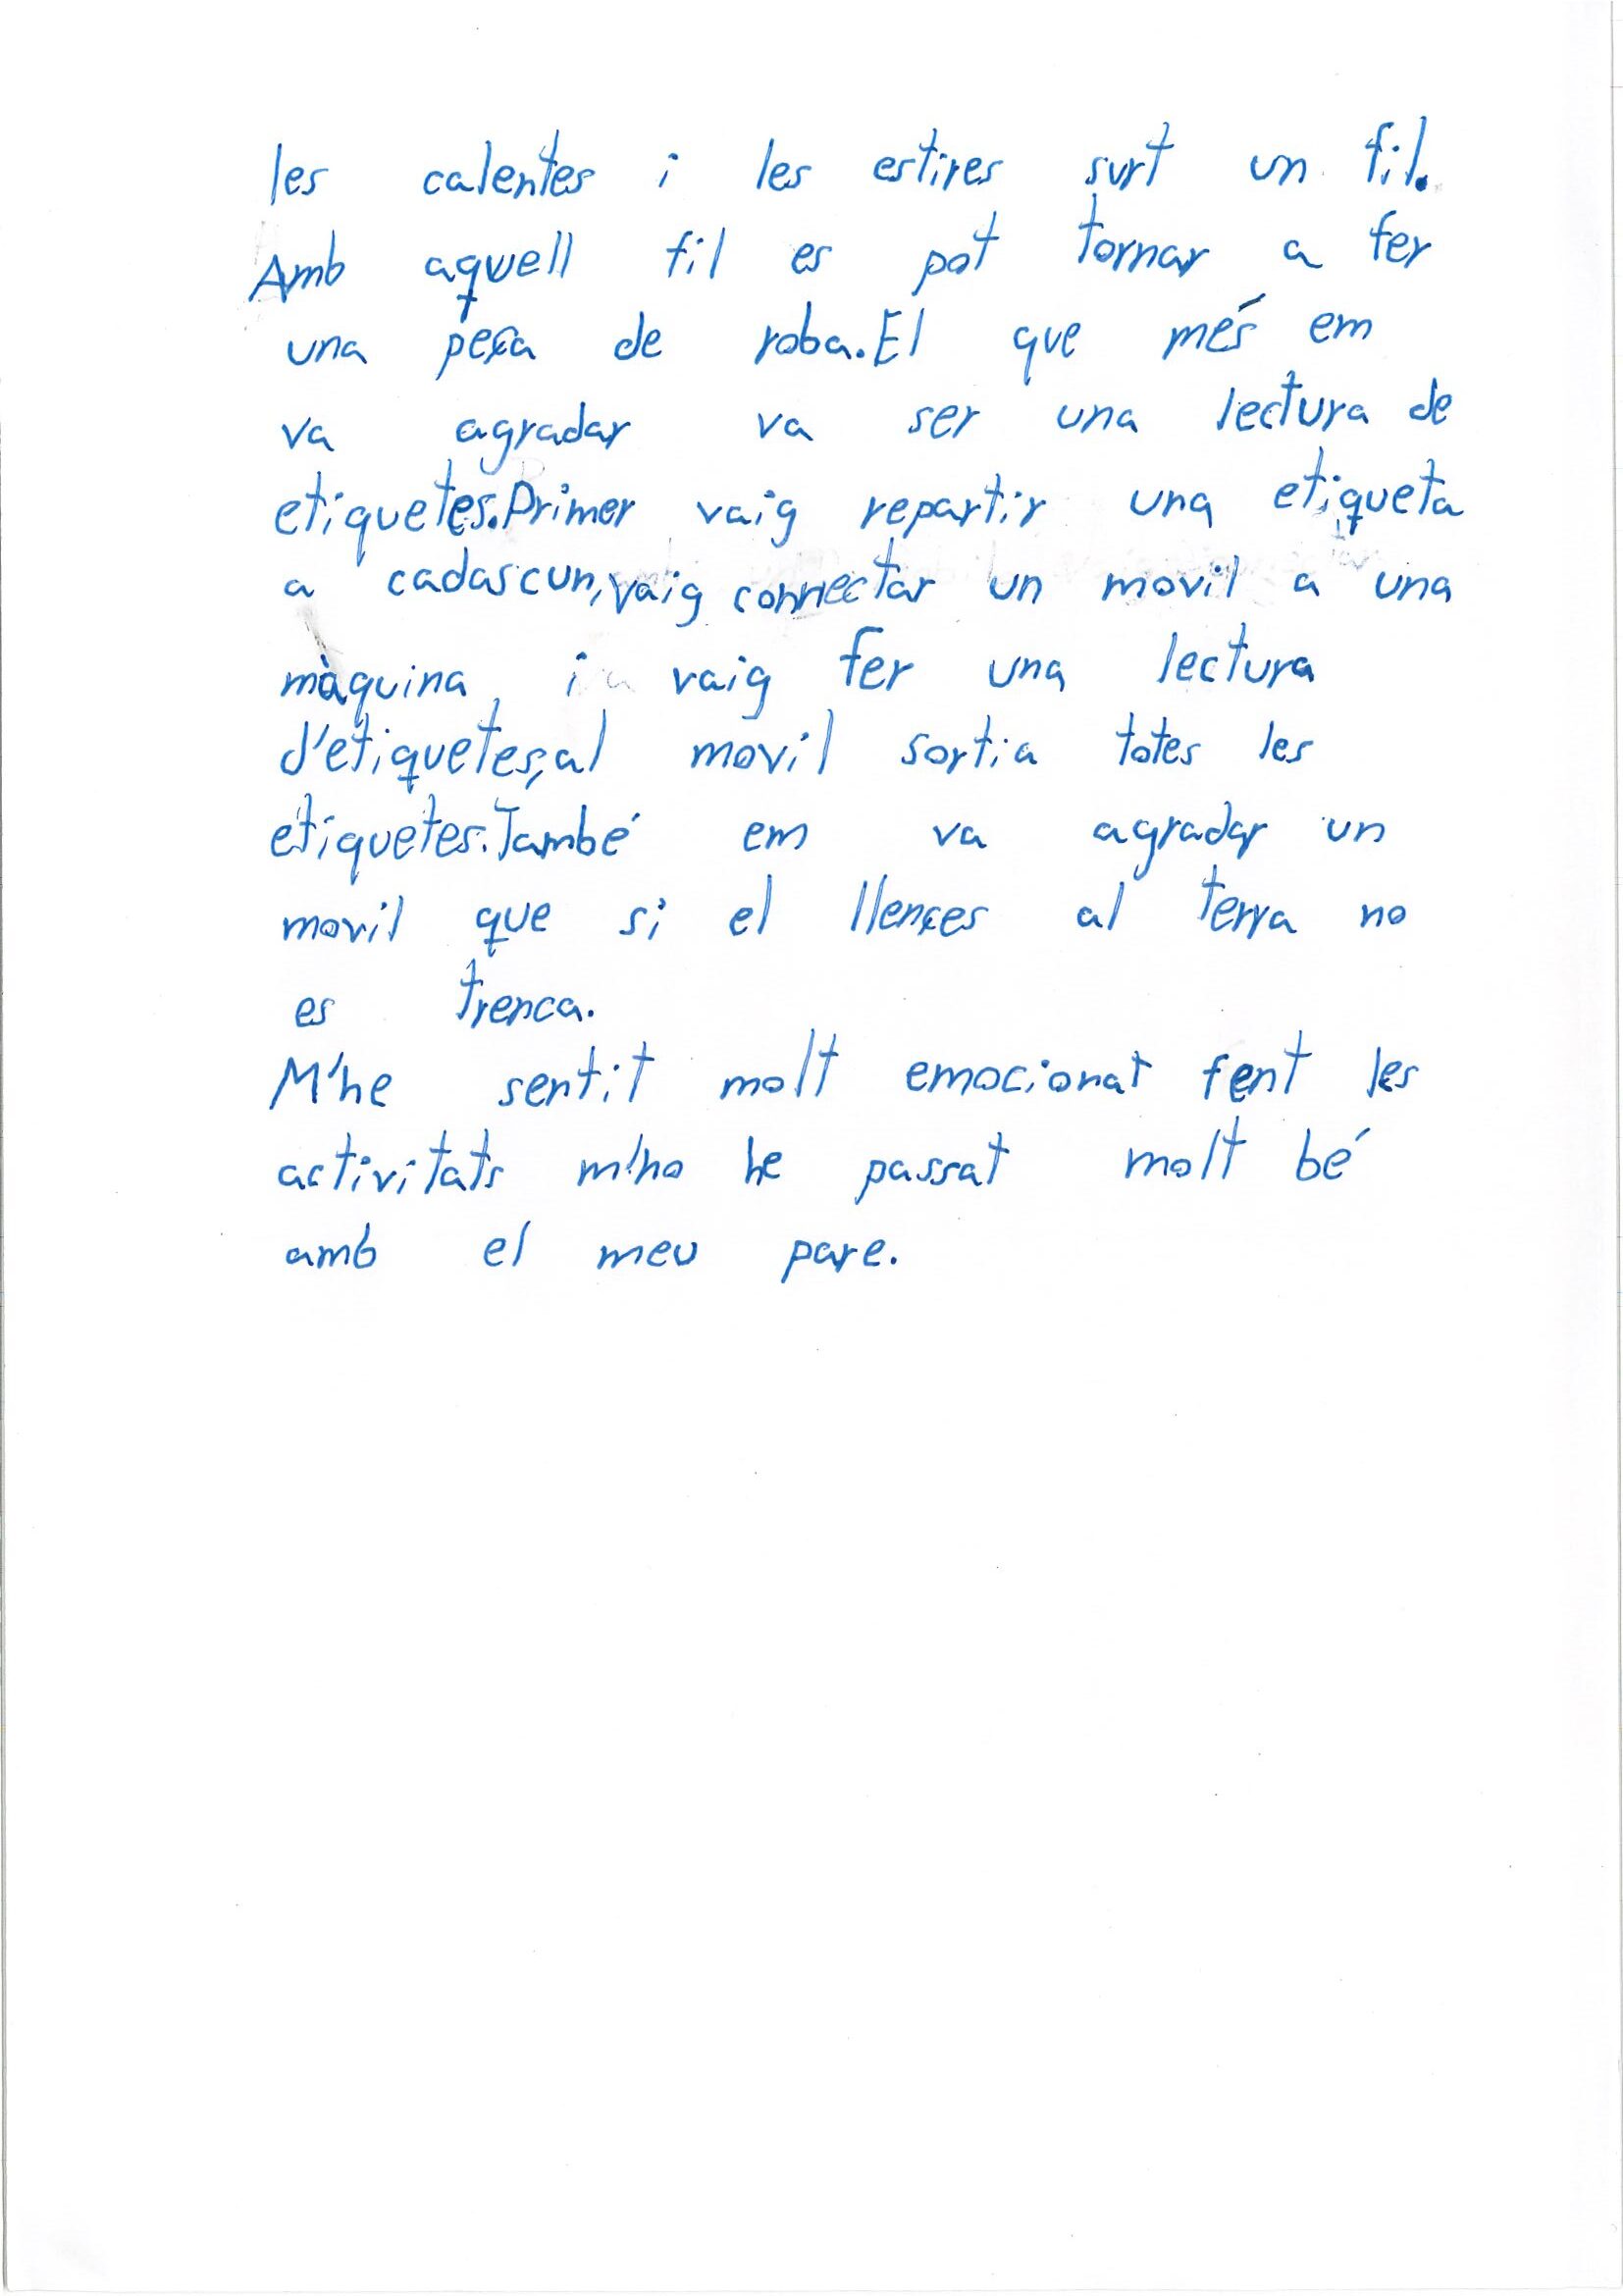 les calentes i les estires surt un fil.
Amb aquell fil es pot tornar a fer
una peça de roba. El que més em
va agradar va ser una lectura de
etiquetes. Primer vaig repartir una etiqueta
a cadascun, vaig connectar un movil a una
màquina i vaig fer una lectura
d'etiquetes, al movil sortia totes les
etiquetes. També em va agradar un
movil que si el llençes al terra no
es trenca.
M'he sentit molt emocionat fent les
activitats m'ho he passat molt bé
amb el meu pare.